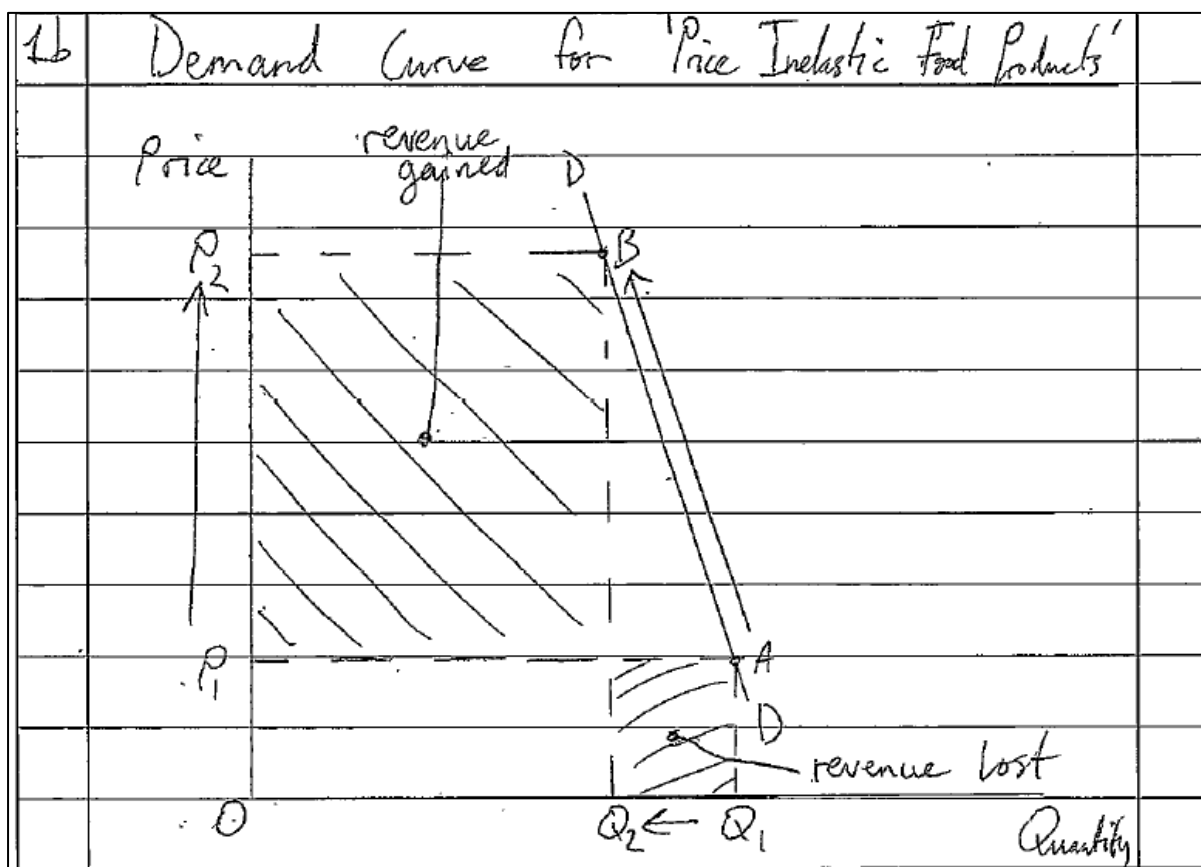 1b Demand Curve for 'Price Inelastic Food Products'
revenue
gained
Price
D
P2
B
P1
A
D
revenue lost
O
Q2 ← Q1
Quantity